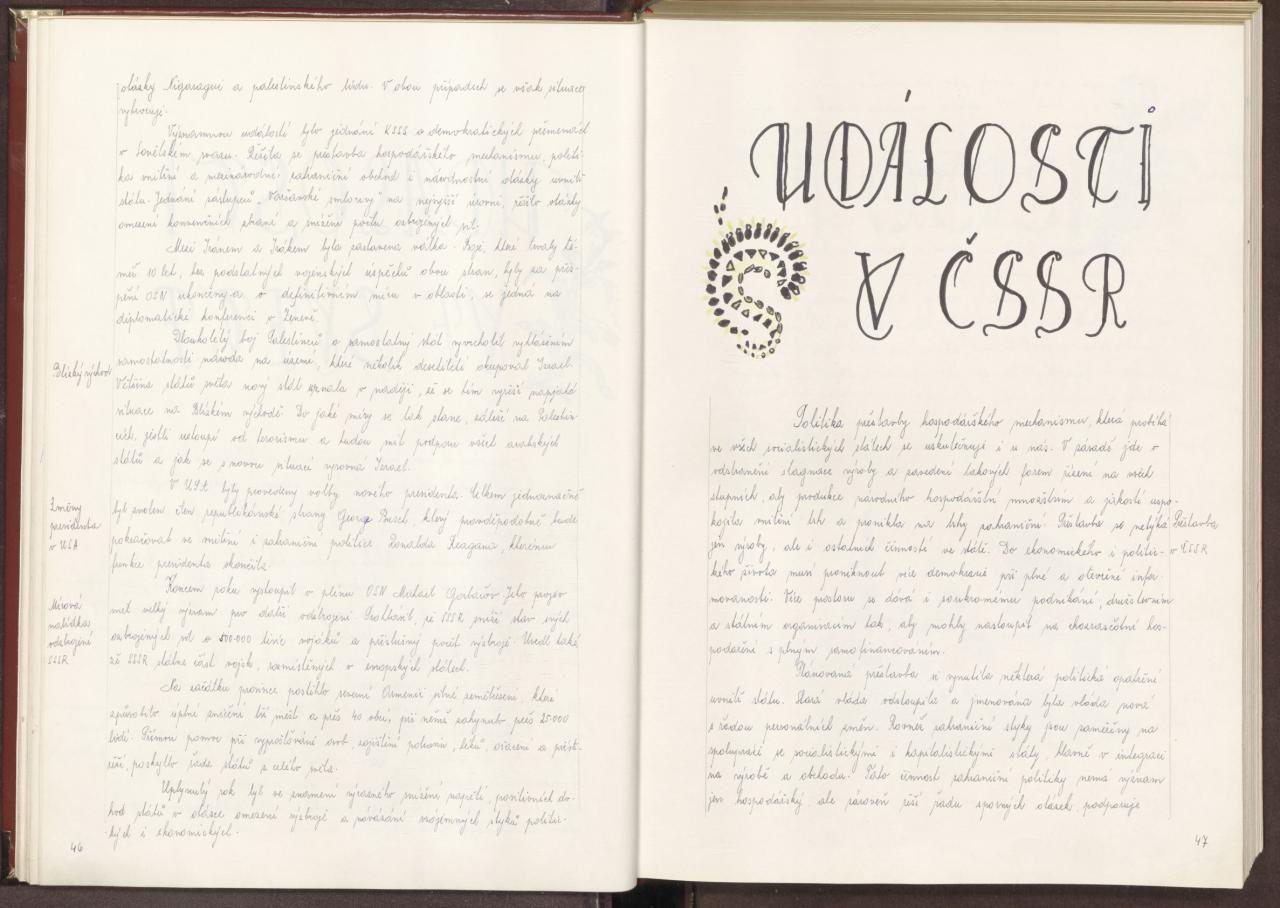 otázky Nigaragui a palestinského lidu. V obou případech se však situace
vyhrocuje.
Významnou událostí bylo jednání KSSS o demokratických přeměnách
v Sovětském svazu. Řešila se přestavba hospodářského mechanismu, politi-
ka vnitřní a mezinárodní, zahraniční obchod i národnostní otázky uvnitř
státu. Jednání zástupců "Varšavské smlouvy" na nejvyšší úrovni, řešilo otázky
omezení konvenčních zbraní a snížení počtu ozbrojených sil.
Mezi Íránem a Irákem byla zastavena válka. Boje, které trvaly té-
měř 10 let, bez podstatných vojenských úspěchů obou stran, byly za při-
spění OSN ukončeny a o definitivním míru v oblasti, se jedná na
diplomatické konferenci v Ženevě.
Dlouholetý boj Palestinců o samostatný stát vyvrcholil vyhlášením
samostatnosti národa na území, které několik desetiletí okupoval Izrael.
Blízký východ
Většina států světa nový stát uznala v naději, že se tím vyřeší napjatá
situace na Blízkém východě. Do jaké míry se tak stane, záleží na Palestin-
cích, jestli ustoupí od terorismu a budou mít podporu všech arabských
států a jak se s novou situací vyrovná Izrael.
V USA byly provedeny volby nového presidenta. Celkem jednoznačně
Změny
presidenta
v USA
byl zvolen člen republikánské strany George Busch, který pravděpodobně bude
pokračovat ve vnitřní i zahraniční politice Ronalda Reagana, kterému
funkce presidenta skončila.
Koncem roku vystoupil v plénu OSN Michail Gorbačov. Jeho projev
Mírová
nabídka
odzbrojení
SSSR
měl velký význam pro další odzbrojení. Prohlásil, že SSSR sníží stav svých
ozbrojených sil o 500.000 tisíc vojáků a příslušný počet výstroje. Uvedl také,
že SSSR stáhne část vojsk, rozmístěných v evropských státech.
Na začátku prosince postihlo severní Arménii silné zemětřesení, které
způsobilo úplné zničení tří měst a přes 40 obcí, při němž zahynulo přes 25.000
lidí. Přímou pomoc při vyprošťování osob, zajištění potravin, léků, ošacení a příst-
řeší, poskytlo řada států z celého světa.
Uplynulý rok byl ve znamení výrazného snížení napětí, pozitivních do-
hod států v otázce omezení výstroje a navázání vzájemných styků politic-
kých i ekonomických.
46
UDÁLOSTI
V ČSSR
Politika přestavby hospodářského mechanismu, která probíhá
ve všech socialistických státech se uskutečňuje i u nás. V zásadě jde o
odstranění stagnace výroby a zavedení takových forem řízení na všech
stupních, aby produkce národního hospodářství množstvím a jakostí uspo-
kojila vnitřní trh a pronikla na trhy zahraniční. Přestavba se netýká
Přestavba
v ČSSR
jen výroby, ale i ostatních činností ve státě. Do ekonomického i politic-
kého života musí proniknout více demokracie při plné a otevřené infor-
movanosti. Více prostoru se dává i soukromému podnikání, družstevním
a státním organizacím tak, aby mohly nastoupit na chozrasčotní hos-
podaření s plným samofinancováním.
Plánovaná přestavba si vynutila některá politická opatření
uvnitř státu. Stará vláda odstoupila a jmenována byla vláda nová
s řadou personálních změn. Rovněž zahraniční styky jsou zaměřeny na
spolupráci se socialistickými i kapitalistickými státy, hlavně v integraci
na výrobě a obchodu. Tato činnost zahraniční politiky nemá význam
jen hospodářský, ale zároveň řeší řadu sporných otázek, podporuje
47